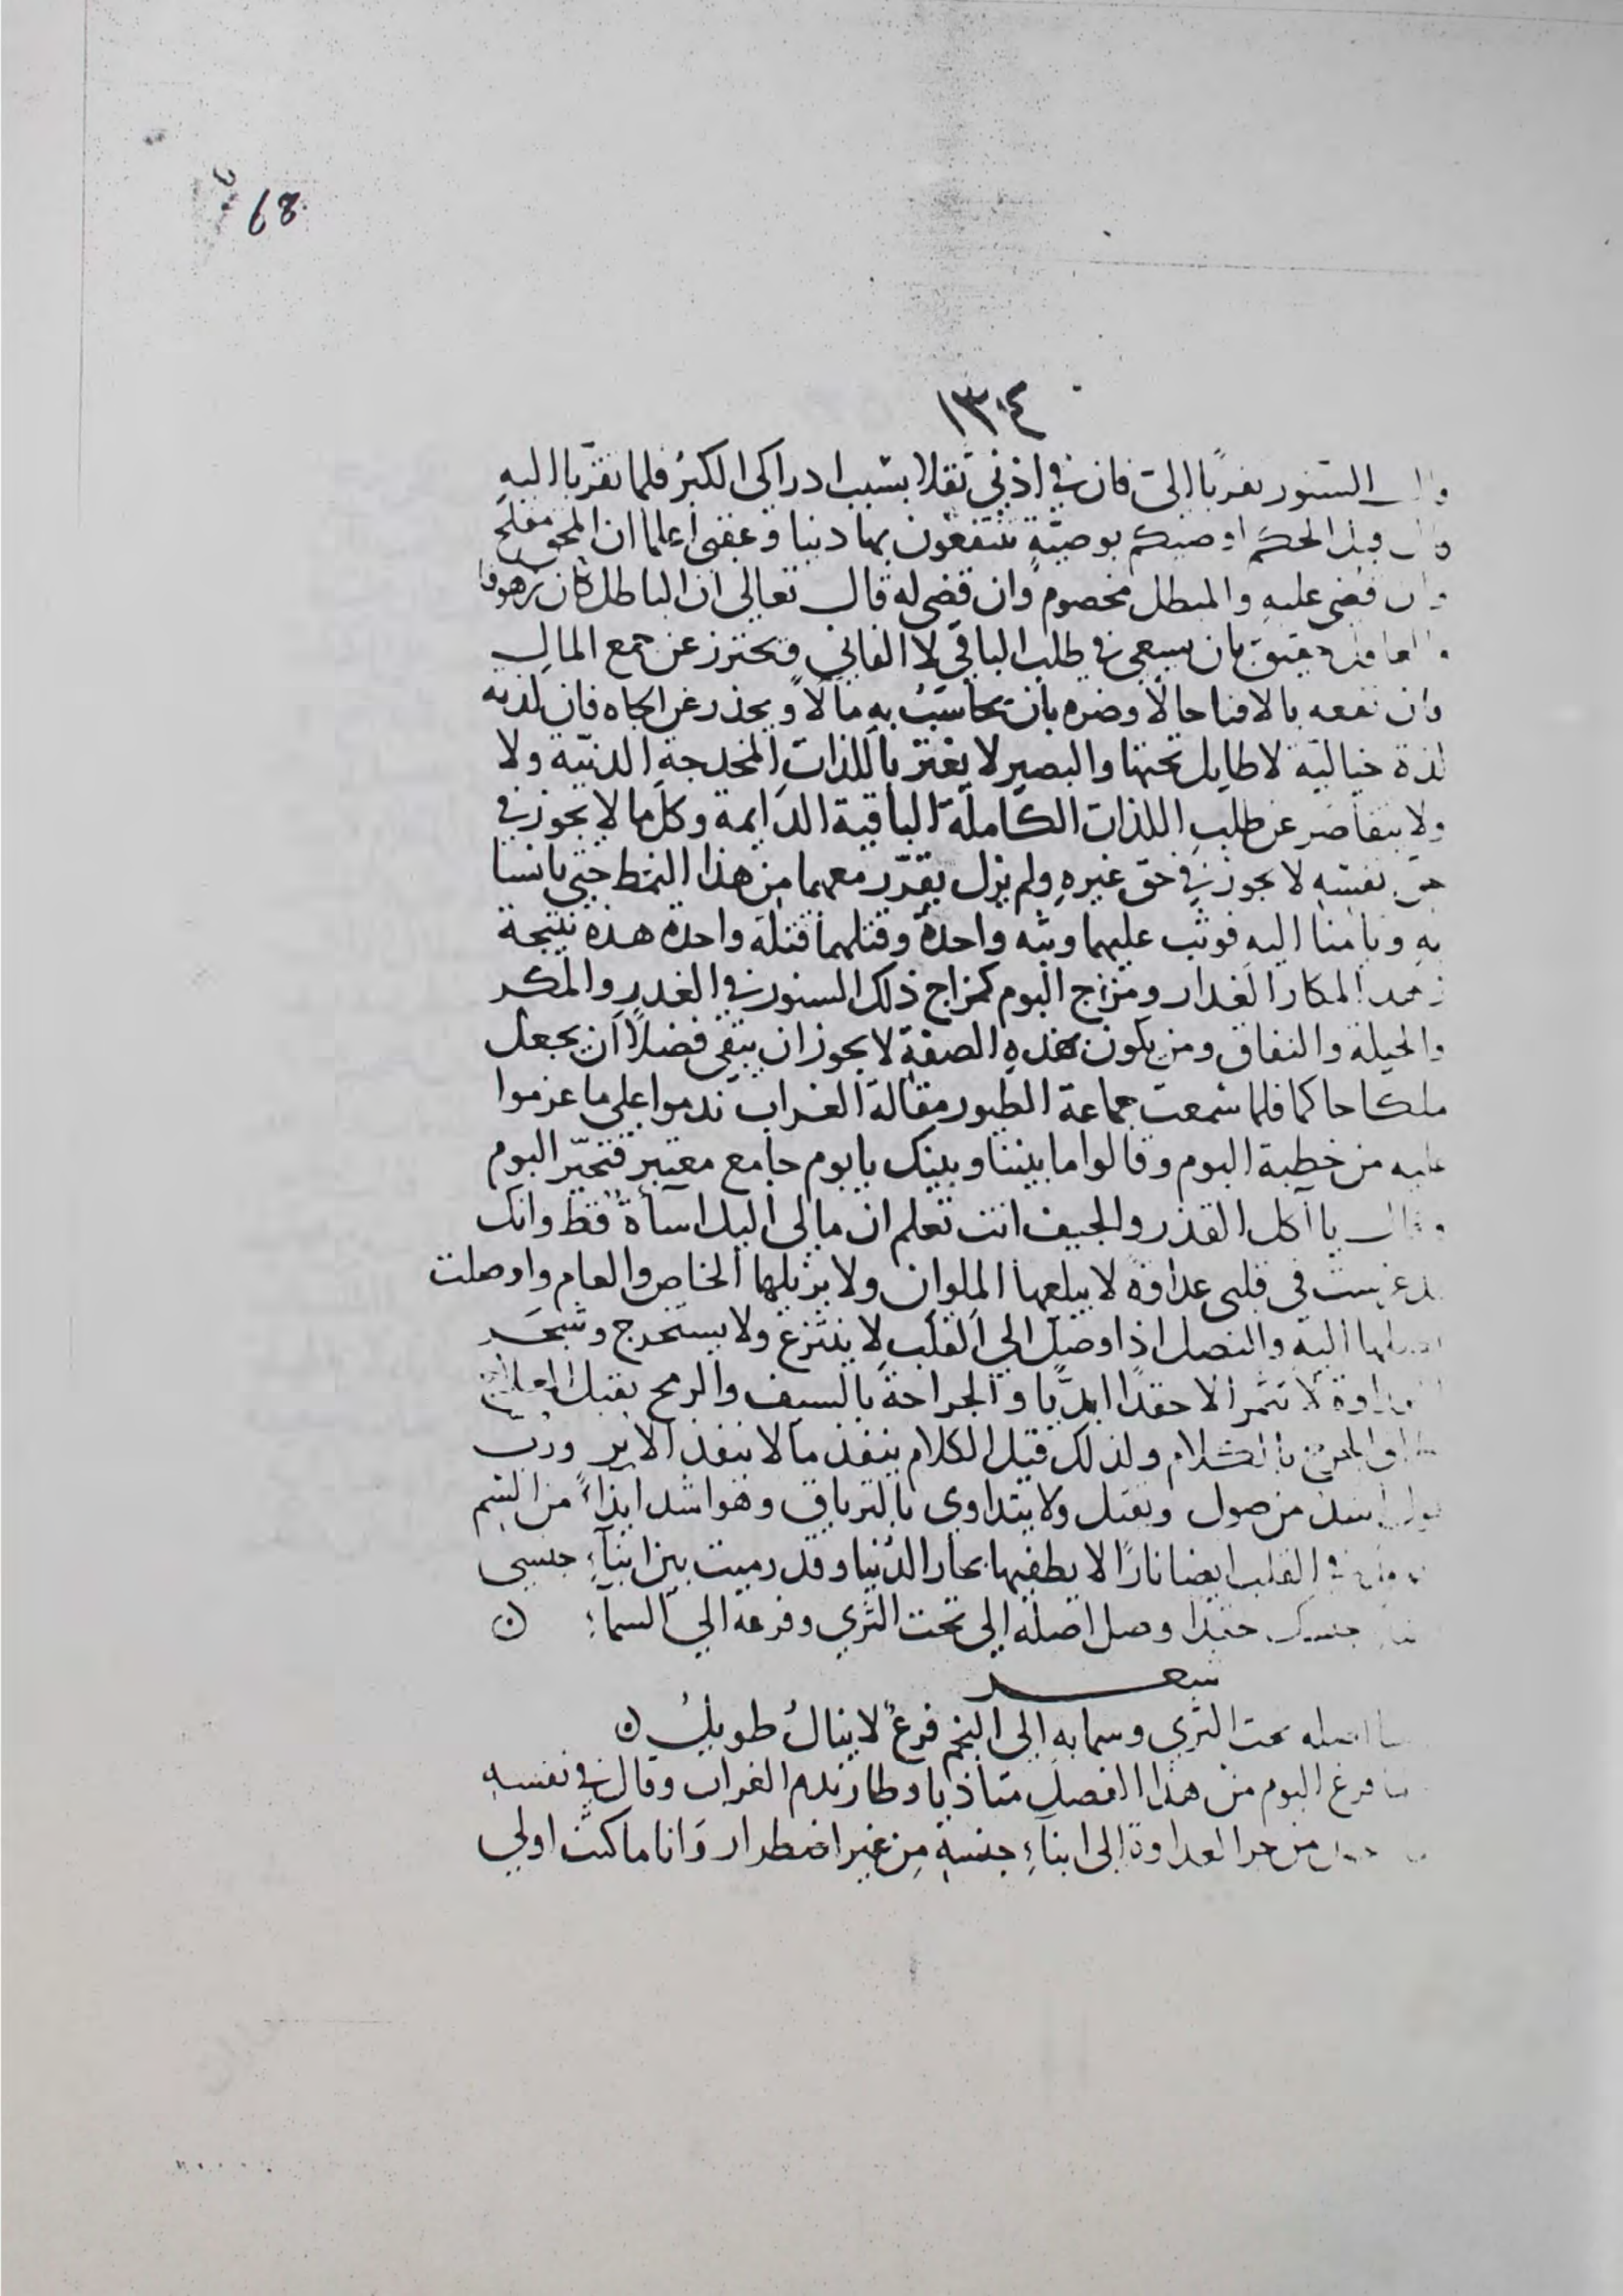 68
١٣٠٤
وقال السنور تقربا الي فان في اذني ثقلا بسبب ادراكي الكبر فلما تقربا اليه
وقال قبل الحكم اوصيكم بوصية تنتفعون بها دنيا وعقبى اعلما ان المحق مفلح
وان قضي عليه والمبطل مخصوم وان قضي له قال تعالى ان الباطل كان زهوقا
والعاقل حقيق بان يسعى في طلب الباقي لا الفاني فتحترز عن جمع المال
وان نفعه بالافنا حالا وضره بان يحاسب به مآلا ويحذر عن الجاه فان لذته
لذة خيالية لا طايل تحتها والبصير لا يغتر باللذات المخدجة الدنية ولا
ولا يتقاصر عن طلب اللذات الكاملة الباقية الدايمة وكل ما لا يجوز في
حق نفسه لا يجوز في حق غيره ولم يزل يقرر معهما من هذا النمط حتى يانسا
به ويامنا اليه فوثب عليهما وثبه واحدة وقتلهما قتلة واحدة هذه نتيجة
المكار الغدار ومزاج البوم كمزاج ذلك السنور في الغدر والمكر
والحيلة والنفاق ومن يكون بهذه الصفة لا يجوز ان يبقى فضلا ان يجعل
ملكا حاكما فلما سمعت جماعة الطيور مقالة الغراب ندموا على ما عزموا
عليه من خطبة البوم وقالوا ما بيننا وبينك يا بوم جامع معتبر فتحير البوم
وقال يا آكل القذر والجيف انت تعلم ان مالي اليك اسأة قط وانك
غرست في قلبي عداوة لا يبلعها الملوان ولا يزيلها الخاص والعام واوصلت
اصلها اليه والنصل اذا وصل الي القلب لا ينتزع ولا يستخرج وشجر
العداوة لا تثمر الا حقدا ابديا والجراحة بالسيف والرمح يقبل العلاج
بالكلام ولذلك قيل الكلام ينفذ مالا ينفذ الابر ورب
قول اسد من صول ويقتل ولا يتداوى بالترياق وهو اشد ايذاء من السم
في القلب ايضا نارا لا يطفيها بحار الدنيا وقد رميت بين ابناء جنسي
جنسك حقدا وصل اصله الي تحت الثرى وفرعه الي السماء
شعر
اصله تحت الثرى وسما به الى النجم فرع لا ينال طويل
فرغ البوم من هذا الفصل متاذيا وطار ندم الغراب وقال في نفسه
من جر العداوة الى ابناء جنسه من غير اضطرار وانا ما كنت اولى